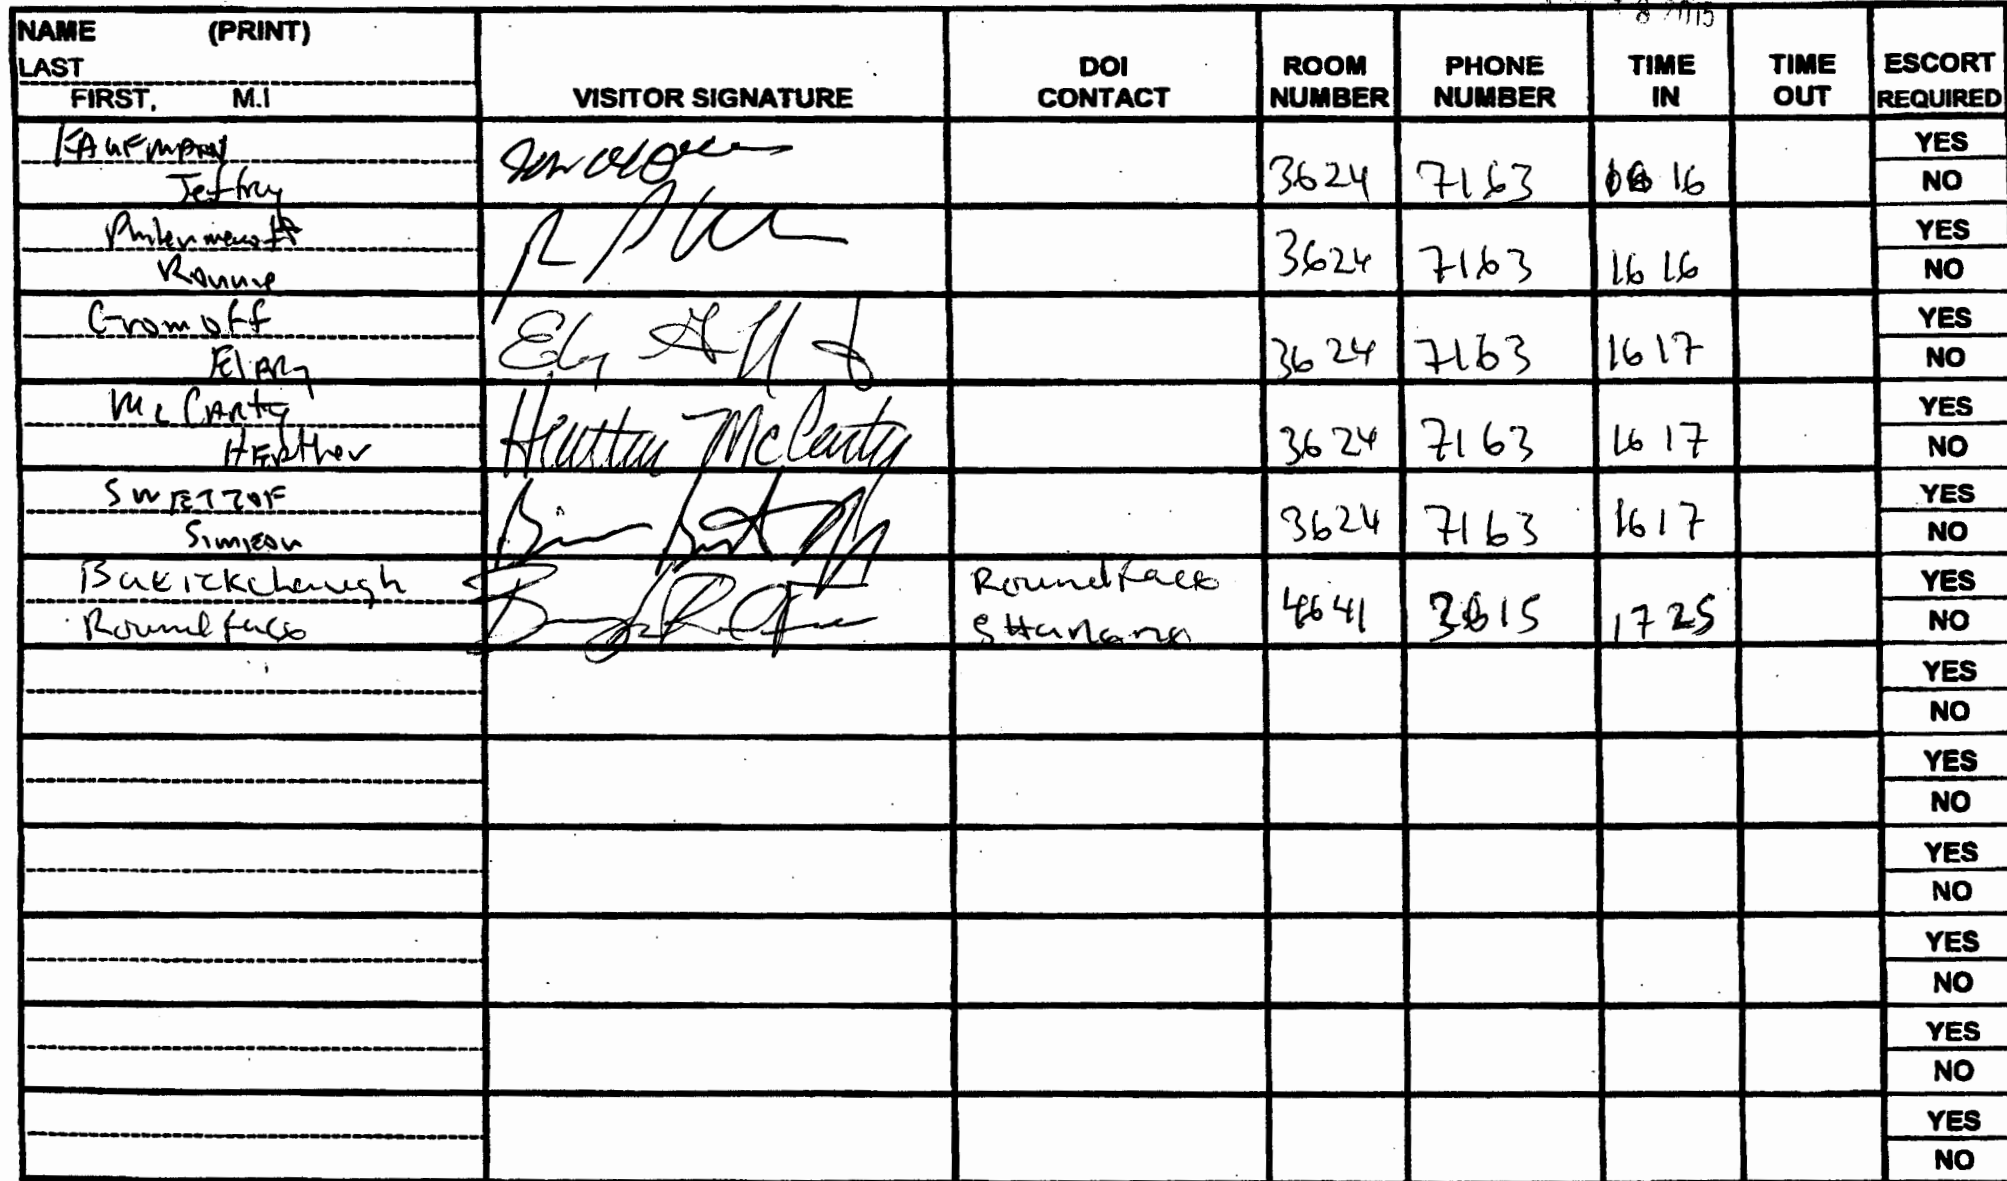 8 2015
NAME (PRINT)
LAST
FIRST, M.I
VISITOR SIGNATURE
DOI
CONTACT
ROOM
NUMBER
PHONE
NUMBER
TIME
IN
TIME
OUT
ESCORT
REQUIRED
KAUFMANN
Jeffry
3624 7163 1616
YES
NO
Ronnie
3624 7163 1616
YES
NO
Gromoff
3624 7163 1617
YES
NO
McCarty
HEAther
Heather McCarty
3624 7163 1617
YES
NO
SWETZOF
Simeon
3624 7163 1617
YES
NO
Roundface
Roundface
4641 3615 1725
YES
NO
YES
NO
YES
NO
YES
NO
YES
NO
YES
NO
YES
NO